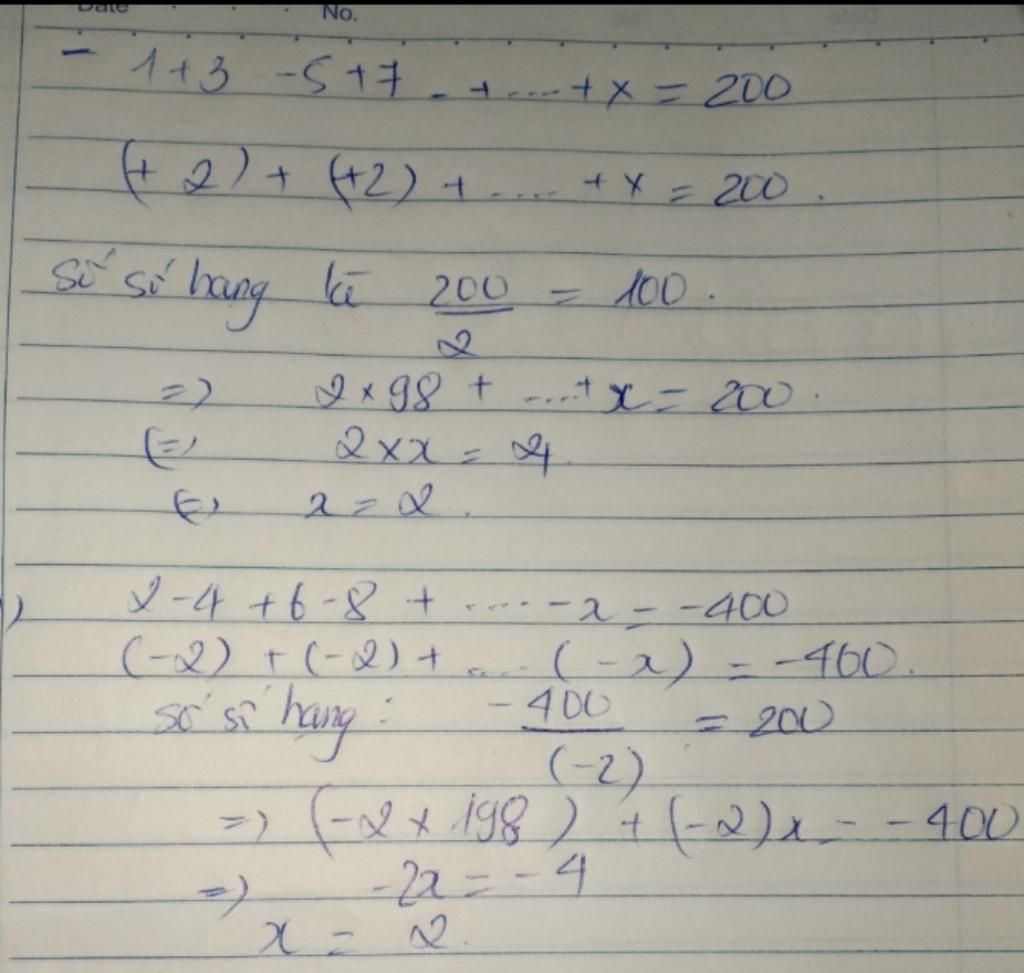 Date No.
- 1+3 -5+7 - + .... + x = 200
(+ 2) + (+2) + ..... + x = 200.
số số hang là 200/2 = 100.
=> 2 × 98 + ....+ x = 200.
(=) 2 × x = 4.
(=) x = 2.
) 2-4 +6-8 + .... -x = -400
(-2) + (-2) + .... (-x) = -400.
số số hang : -400/(-2) = 200
=> (-2 × 198) + (-2)x = -400
=> -2x = -4
x = 2.